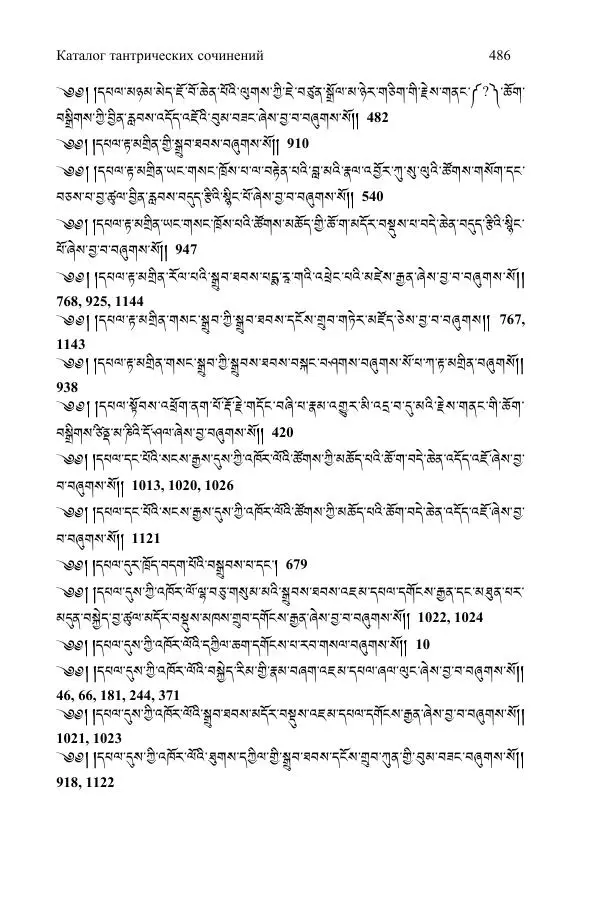 Каталог тантрических сочинений 486
༄༅། །དཔལ་མཉམ་མེད་ཇོ་བོ་ཆེན་པོའི་ལུགས་ཀྱི་ཇེ་བཙུན་སྒྲོལ་མ་ཉེར་གཅིག་གི་རྗེས་གནང་༼?༽་ཆོག་
བསྒྲིགས་ཀྱི་བྱིན་རླབས་འདོད་འཇོའི་བུམ་བཟང་ཞེས་བྱ་བ་བཞུགས་སོ།། 482
༄༅། །དཔལ་རྟ་མགྲིན་གྱི་སྒྲུབ་ཐབས་བཞུགས་སོ།། 910
༄༅། །དཔལ་རྟ་མགྲིན་ཡང་གསང་ཁྲོས་པ་ལ་བརྟེན་པའི་བླ་མའི་རྣལ་འབྱོར་ཀུ་སུ་ལུའི་ཚོགས་གསོག་དང་
བཅས་པ་བྱ་ཚུལ་བྱིན་རླབས་བདུད་རྩིའི་སྙིང་པོ་ཞེས་བྱ་བ་བཞུགས་སོ།། 540
༄༅། །དཔལ་རྟ་མགྲིན་ཡང་གསང་ཁྲོས་པའི་ཚོགས་མཆོད་ཀྱི་ཆོ་ག་མདོར་བསྡུས་པ་བདེ་ཆེན་བདུད་རྩིའི་སྙིང་
པོ་ཞེས་བྱ་བ་བཞུགས་སོ།། 947
༄༅། །དཔལ་རྟ་མགྲིན་རོལ་པའི་སྒྲུབ་ཐབས་པདྨ་རཱ་གའི་འཕྲེང་པའི་མཛེས་རྒྱན་ཞེས་བྱ་བ་བཞུགས་སོ།།
768, 925, 1144
༄༅། །དཔལ་རྟ་མགྲིན་གསང་སྒྲུབ་ཀྱི་སྒྲུབ་ཐབས་དངོས་གྲུབ་གཏེར་མཛོད་ཅེས་བྱ་བ་བཞུགས།། 767,
1143
༄༅། །དཔལ་རྟ་མགྲིན་གསང་སྒྲུབ་ཀྱི་སྒྲུབས་ཐབས་བསྐང་བཤགས་བཞུགས་སོ་པ་ཀ་རྟ་མགྲིན་བཞུགས་སོ།།
938
༄༅། །དཔལ་སྟོབས་འཕྲོག་ནག་པོ་རྡོ་རྗེ་གདོང་བཞི་པ་རྣམ་འགྱུར་མི་འདྲ་བ་དུ་མའི་རྗེས་གནང་གི་ཆོག་
བསྒྲིགས་ཙིནྡྷ་མ་ཎིའི་དོ་ཤལ་ཞེས་བྱ་བཞུགས་སོ།། 420
༄༅། །དཔལ་དང་པོའི་སངས་རྒྱས་དུས་ཀྱི་འཁོར་ལོའི་ཚོགས་ཀྱི་མཆོད་པའི་ཆོ་ག་བདེ་ཆེན་འདོད་འཇོ་ཞེས་བྱ་
བ་བཞུགས་སོ།། 1013, 1020, 1026
༄༅། །དཔལ་དང་པོའི་སངས་རྒྱས་དུས་ཀྱི་འཁོར་ལོའི་ཚོགས་ཀྱི་མཆོད་པའི་ཆོག་བདེ་ཆེན་འདོད་འཇོ་ཞེས་བྱ་
བ་བཞུགས་སོ།། 1121
༄༅། །དཔལ་དུར་ཁྲོད་བདག་པོའི་བསྒྲུབས་པ་དང་། 679
༄༅། །དཔལ་དུས་ཀྱི་འཁོར་ལོ་ལྷ་བཅུ་གསུམ་མའི་སྒྲུབས་ཐབས་འཇམ་དཔལ་དགོངས་རྒྱན་དང་མཐུན་པར་
མདུན་བསྐྱེད་བྱ་ཚུལ་མདོར་བསྡུས་མཁས་གྲུབ་དགོངས་རྒྱན་ཞེས་བྱ་བ་བཞུགས་སོ།། 1022, 1024
༄༅། །དཔལ་དུས་ཀྱི་འཁོར་ལོའི་དཀྱིལ་ཆག་དགོངས་པ་རབ་གསལ་བཞུགས་སོ།། 10
༄༅། །དཔལ་དུས་ཀྱི་འཁོར་ལོའི་བསྐྱེད་རིམ་གྱི་རྣམ་བཞག་འཇམ་དཔལ་ཞལ་ལུང་ཞེས་བྱ་བ་བཞུགས་སོ།།
46, 66, 181, 244, 371
༄༅། །དཔལ་དུས་ཀྱི་འཁོར་ལོའི་སྒྲུབ་ཐབས་མདོར་བསྡུས་འཇམ་དཔལ་དགོངས་རྒྱན་ཞེས་བྱ་བ་བཞུགས་སོ།།
1021, 1023
༄༅། །དཔལ་དུས་ཀྱི་འཁོར་ལོའི་ཐུགས་དཀྱིལ་གྱི་སྒྲུབ་ཐབས་དངོས་གྲུབ་ཀུན་གྱི་བུམ་བཟང་བཞུགས་སོ།།
918, 1122